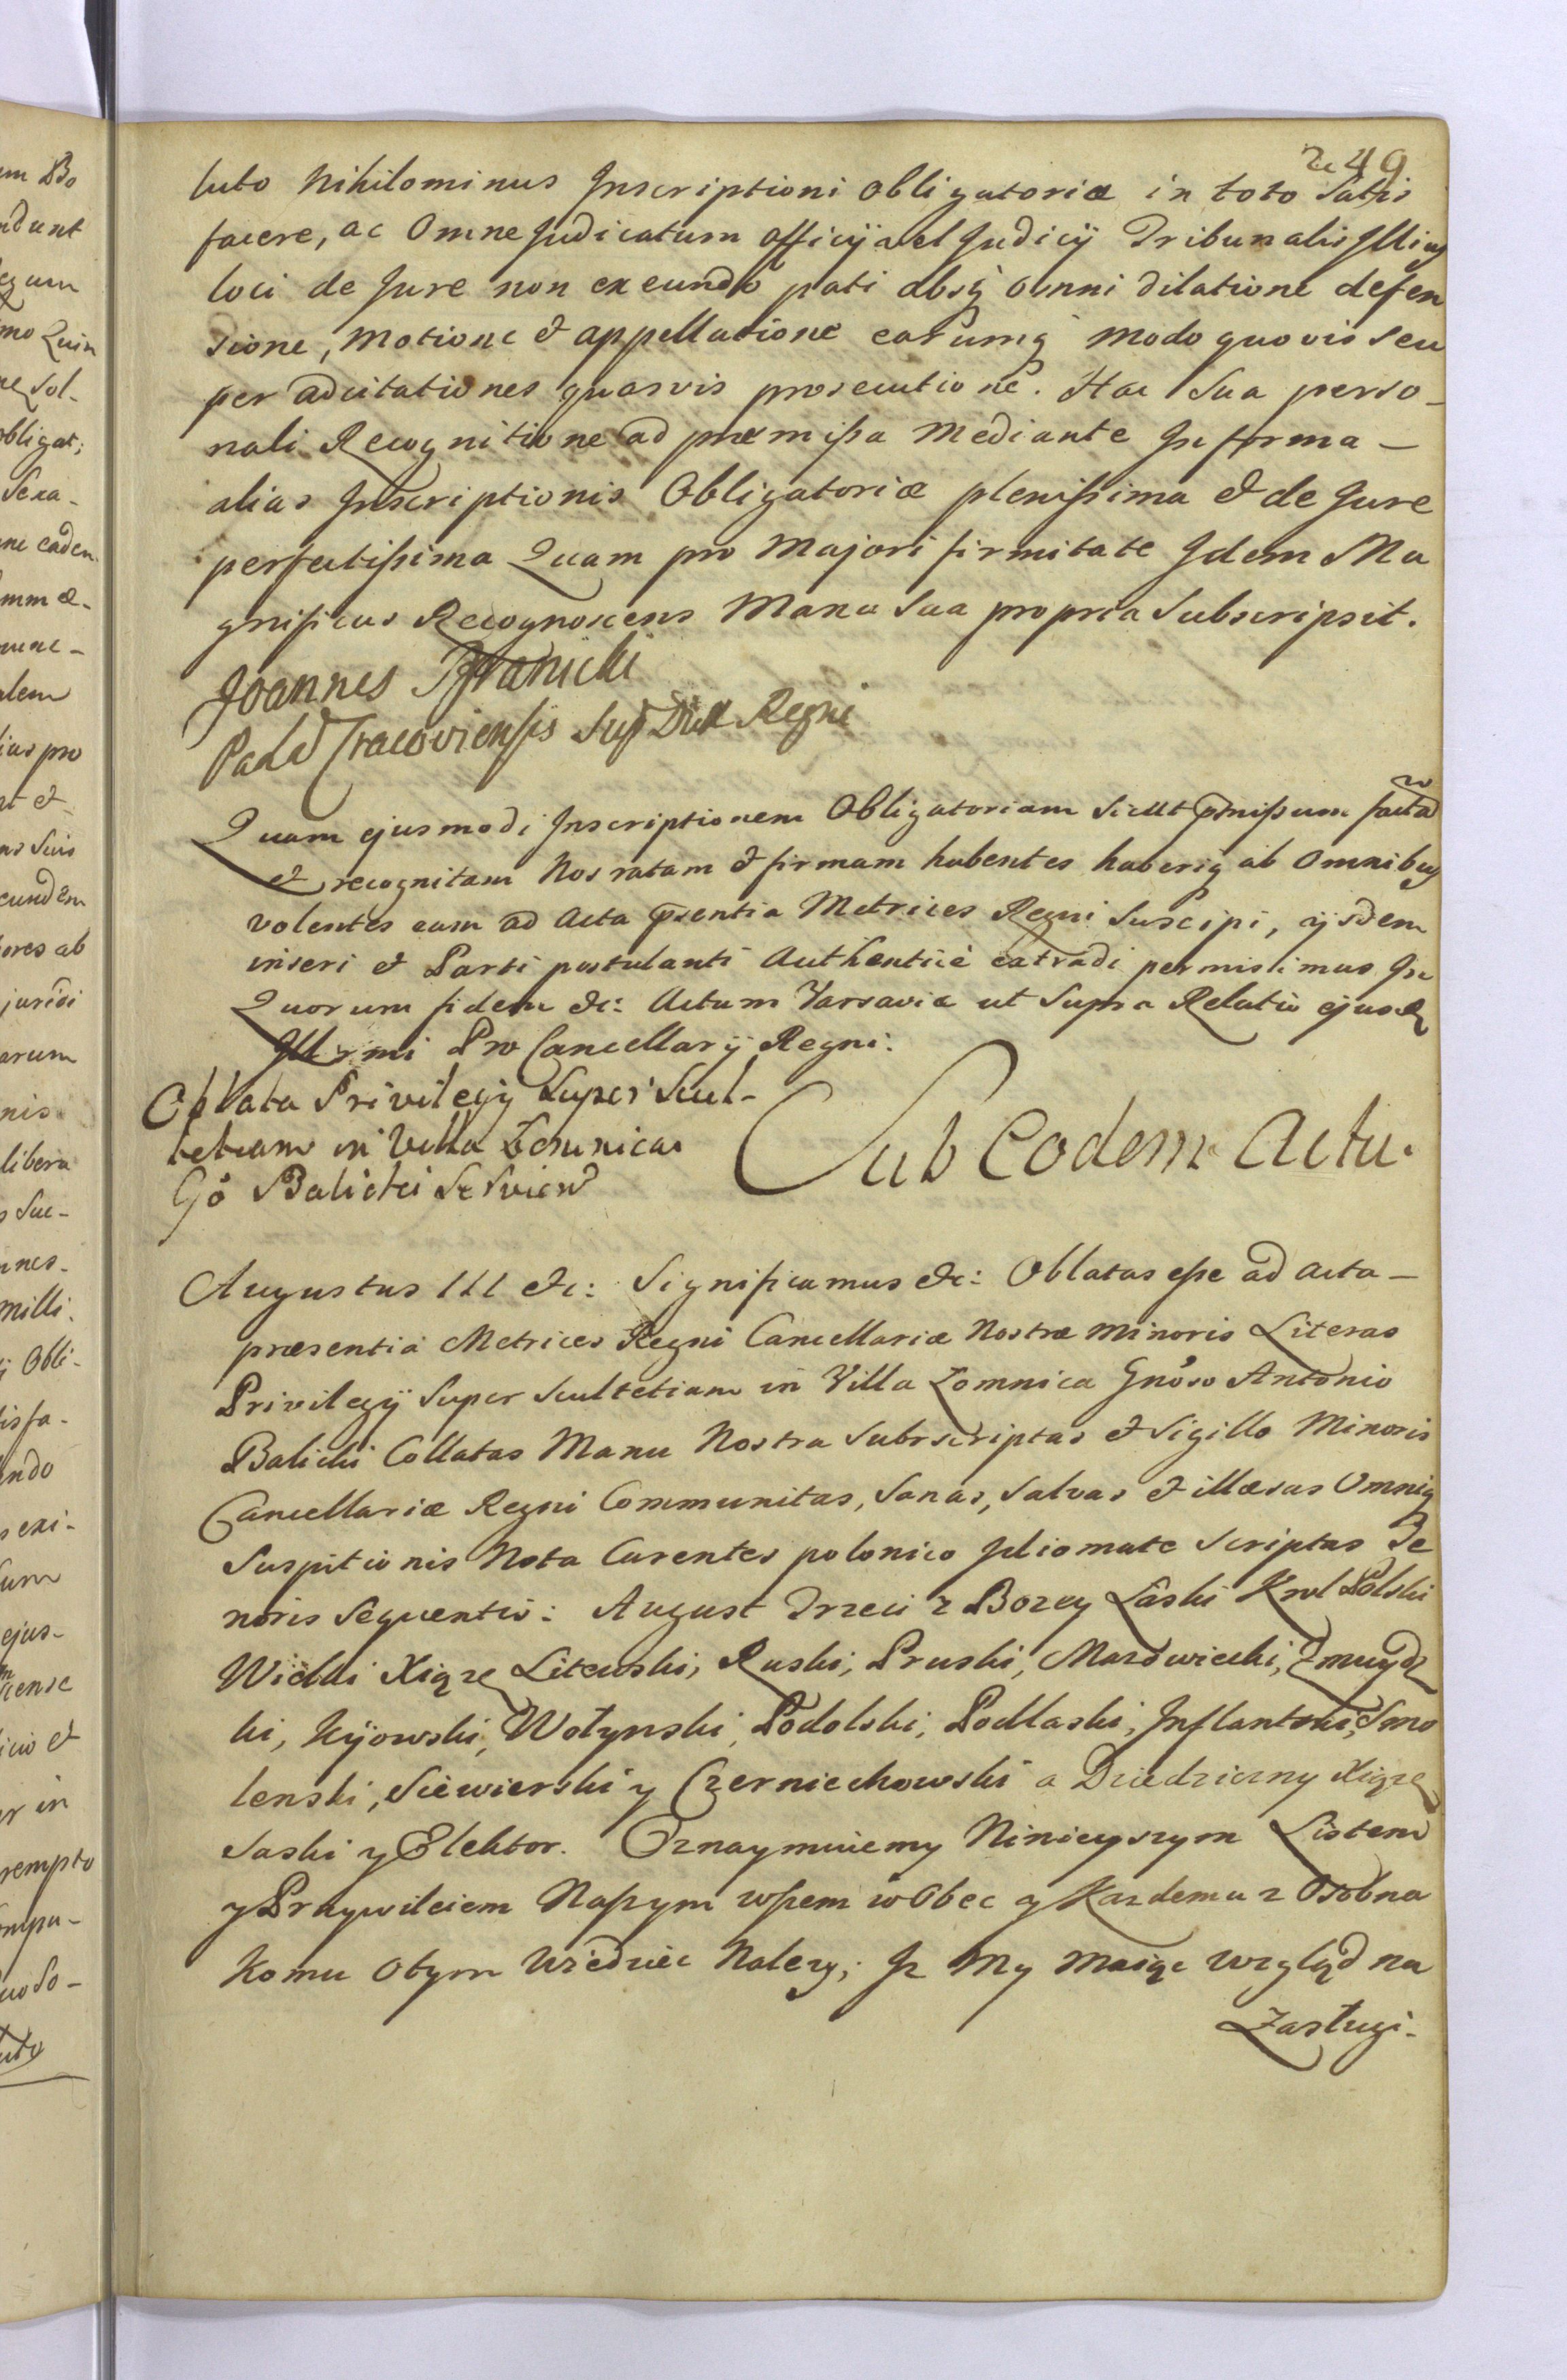 249
luto Nihilominus Inscriptioni Obligatoriæ in toto Satis
facere, ac Omne Judicatum Officij vel Judicij Tribunalis Illius
loci de Jure non exeundo pati absq omni dilatione defen
sione, Motione & appellatione earumq modo quovis seu
per adcitationes quasvis prosecutione. Hac Sua perso-
nali Recognitione ad præmissa Mediante In forma-
alias Inscriptionis Obligatoriæ plenissima & de Jure
perfectissima Quam pro Majori firmitate Idem Ma
gnificus Recognoscens Manu Sua propria Subscripsit.
Joannes Branicki
Palat Cracoviensis Sup Dux Regni
Quam ejusmodi Inscriptionem Obligatoriam Sicut pmissum factad
& recognitam Nos ratam & firmam habentes haberiq ab Omnibus
volentes eam ad Acta psentia Metrices Regni Suscipi, ijsdem
inseri & Parti postulanti Authentice extradi permisimus In
Quorum fidem &c: Actum Varsaviæ ut Supra Relatio ejusd
Illrmi Pro Cancellarij Regni.
Oblata Privilegij Super Scul-
tetiam in Villa Łomnica
Gō Balicki Servien
Sub Eodem Actu.
Augustus III &c: Significamus &c: Oblatas esse ad acta-
præsentia Metrices Regni Cancellariæ Nostræ Minoris Literas
Privilegij Super Scultetiam in Villa Łomnica Gnoso Antonio
Balicki Collatas Manu Nostra Subscriptas & Sigillo Minoris
Cancellariæ Regni Communitas, Sanas, Salvas & illæsas Omniq
Suspitionis Nota Carentes polonico Idiomate Scriptas Te
noris Sequentis: August Trzeci z Bozey Łaski Krol Polski
Wielki Xiąze Litewski, Ruski, Pruski, Mazowiecki, Zmuydz
ki, Kijowski, Wołynski, Podolski, Podlaski, Inflantski, Smo
lenski, Siewierski y Czerniechowski a Dziedziczny Xiąze
Saski y Elektor. Oznaymuiemy Ninieyszym Listem
y Przywileiem Naszym wszem w Obec y Kazdemu z Osobna
Komu Otym Wiedziec Nalezy; Iz My Maiąc wzgląd na
Zasługi.